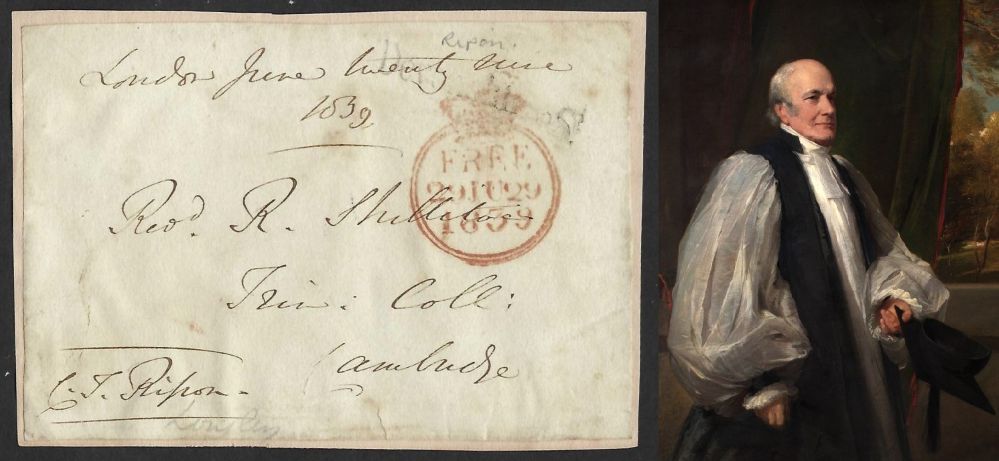 Ripon.
London June twenty nine
1839
FREE
29 JU 29
1839
Revd. R. Shilleto
Trin: Coll:
Cambridge
C. T. Ripon
Longley